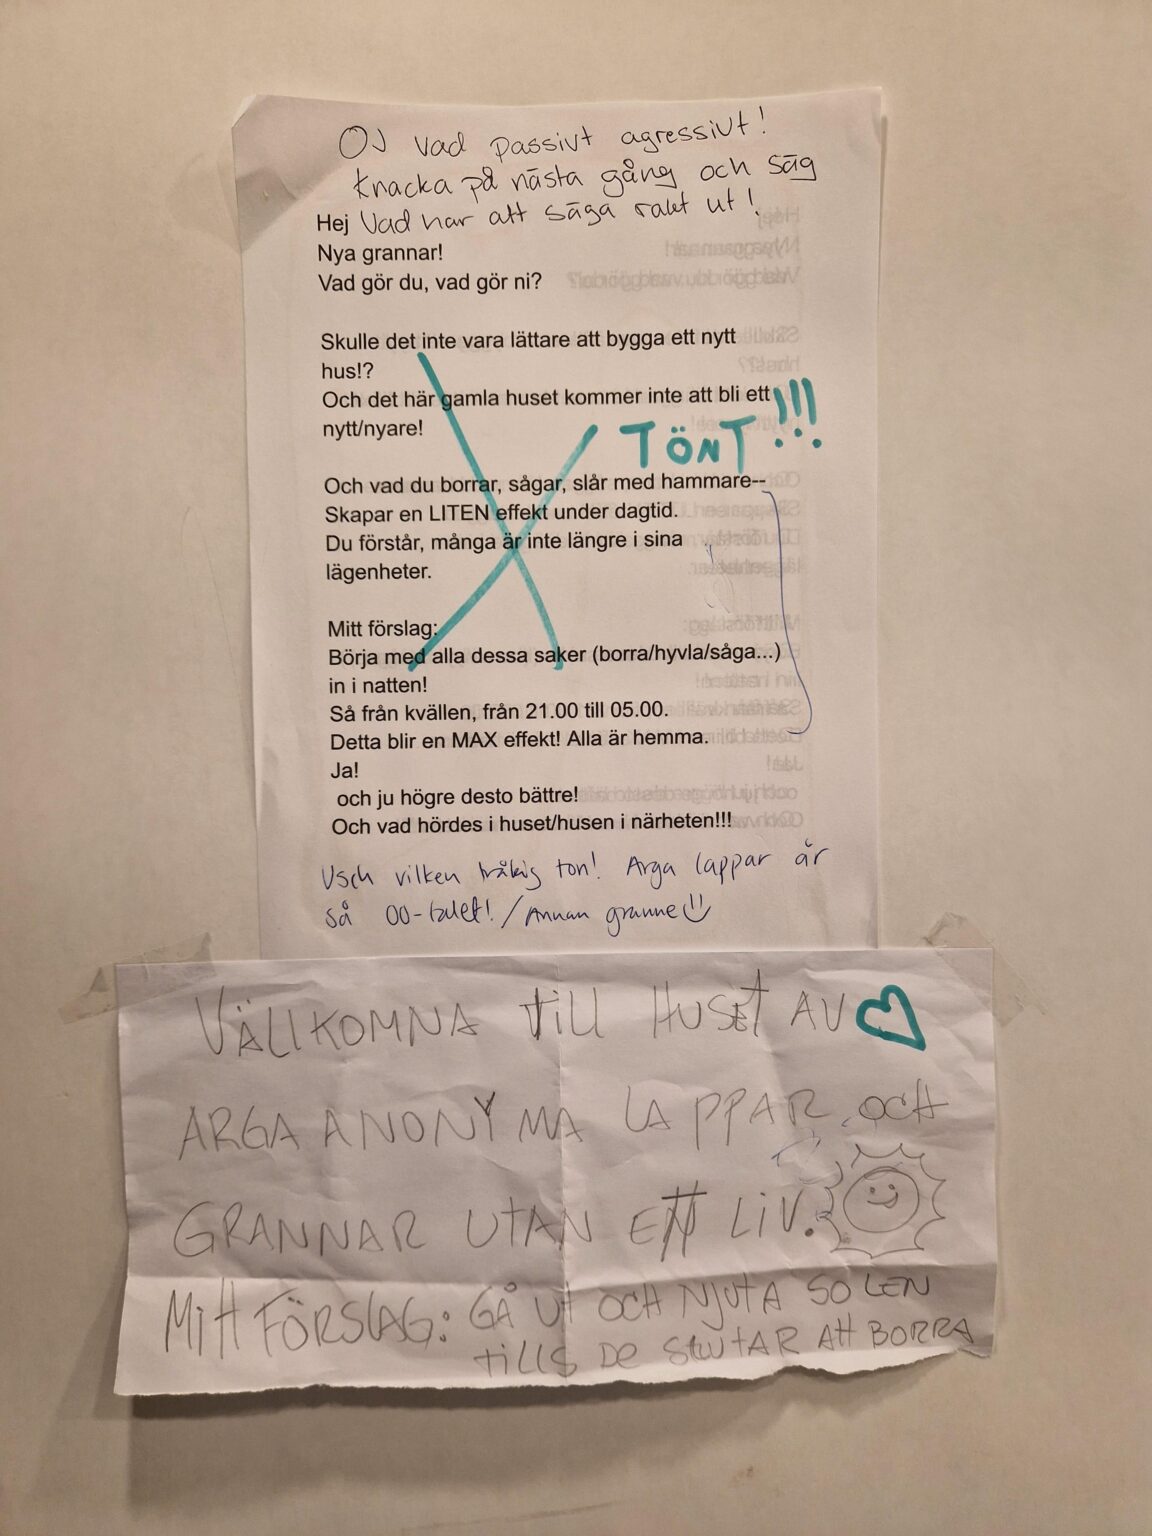 OJ vad passivt agressivt!
Knacka på nästa gång och säg
Vad har att säga rakt ut!
Hej
Nya grannar!
Vad gör du, vad gör ni?
Skulle det inte vara lättare att bygga ett nytt
hus!?
Och det här gamla huset kommer inte att bli ett
nytt/nyare!
TÖNT!!!
Och vad du borrar, sågar, slår med hammare--
Skapar en LITEN effekt under dagtid.
Du förstår, många är inte längre i sina
lägenheter.
Mitt förslag:
Börja med alla dessa saker (borra/hyvla/såga...)
in i natten!
Så från kvällen, från 21.00 till 05.00.
Detta blir en MAX effekt! Alla är hemma.
Ja!
och ju högre desto bättre!
Och vad hördes i huset/husen i närheten!!!
Usch vilken tråkig ton! Arga lappar är
så 00-talet! / Annan granne
VÄLLKOMNA TILL HUSET AV
ARGA ANONYMA LAPPAR OCH
GRANNAR UTAN ETT LIV.
MITT FÖRSLAG: GÅ UT OCH NJUTA SOLEN
TILLS DE SLUTAR ATT BORRA